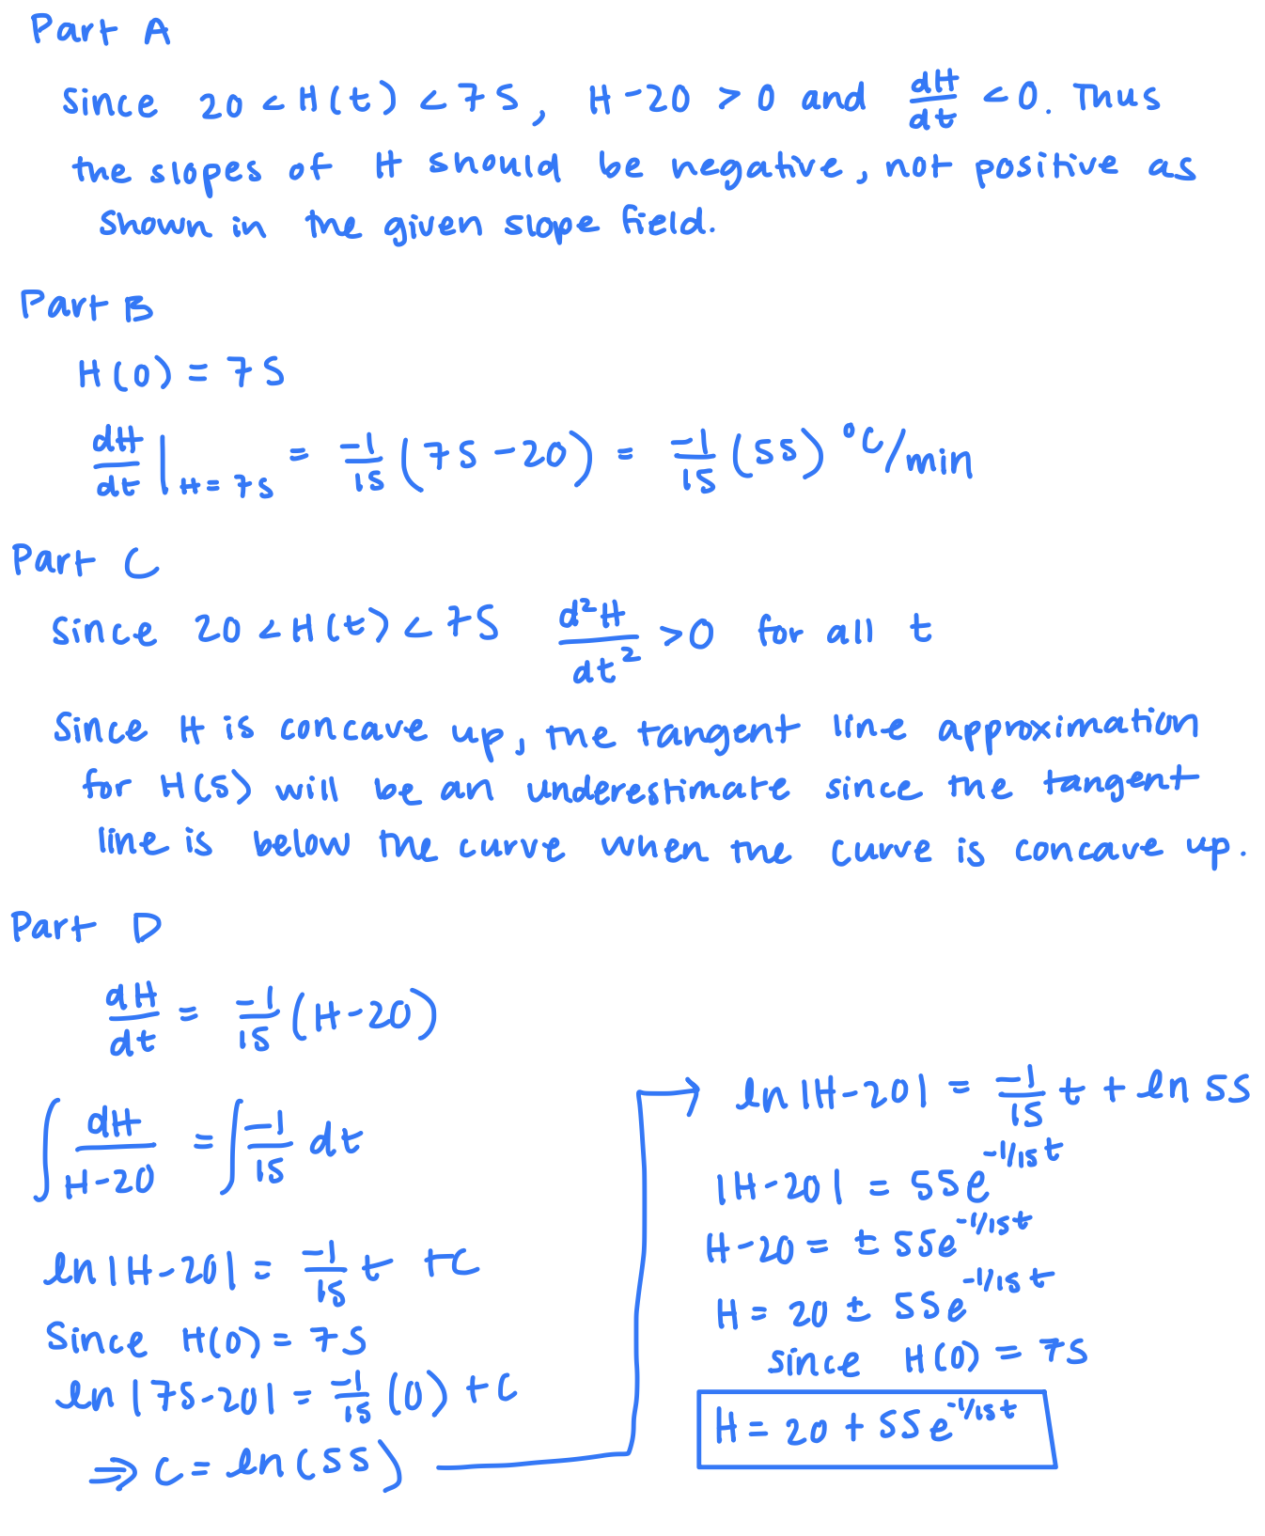 Part A
Since 20 < H(t) < 75, H-20 > 0 and dH/dt < 0. Thus
the slopes of H should be negative, not positive as
shown in the given slope field.
Part B
H(0) = 75
dH/dt |H=75 = -1/15 (75-20) = -1/15 (55) °C/min
Part C
Since 20 < H(t) < 75 d²H/dt² > 0 for all t
Since H is concave up, the tangent line approximation
for H(5) will be an underestimate since the tangent
line is below the curve when the curve is concave up.
Part D
dH/dt = -1/15 (H-20)
∫ dH/H-20 = ∫ -1/15 dt
ln|H-20| = -1/15 t +C
Since H(0) = 75
ln|75-20| = -1/15 (0) + C
⇒ C = ln(55)
→ ln|H-20| = -1/15 t + ln 55
|H-20| = 55e^-1/15t
H-20 = ± 55e^-1/15t
H = 20 ± 55e^-1/15t
since H(0) = 75
H = 20 + 55e^-1/15t